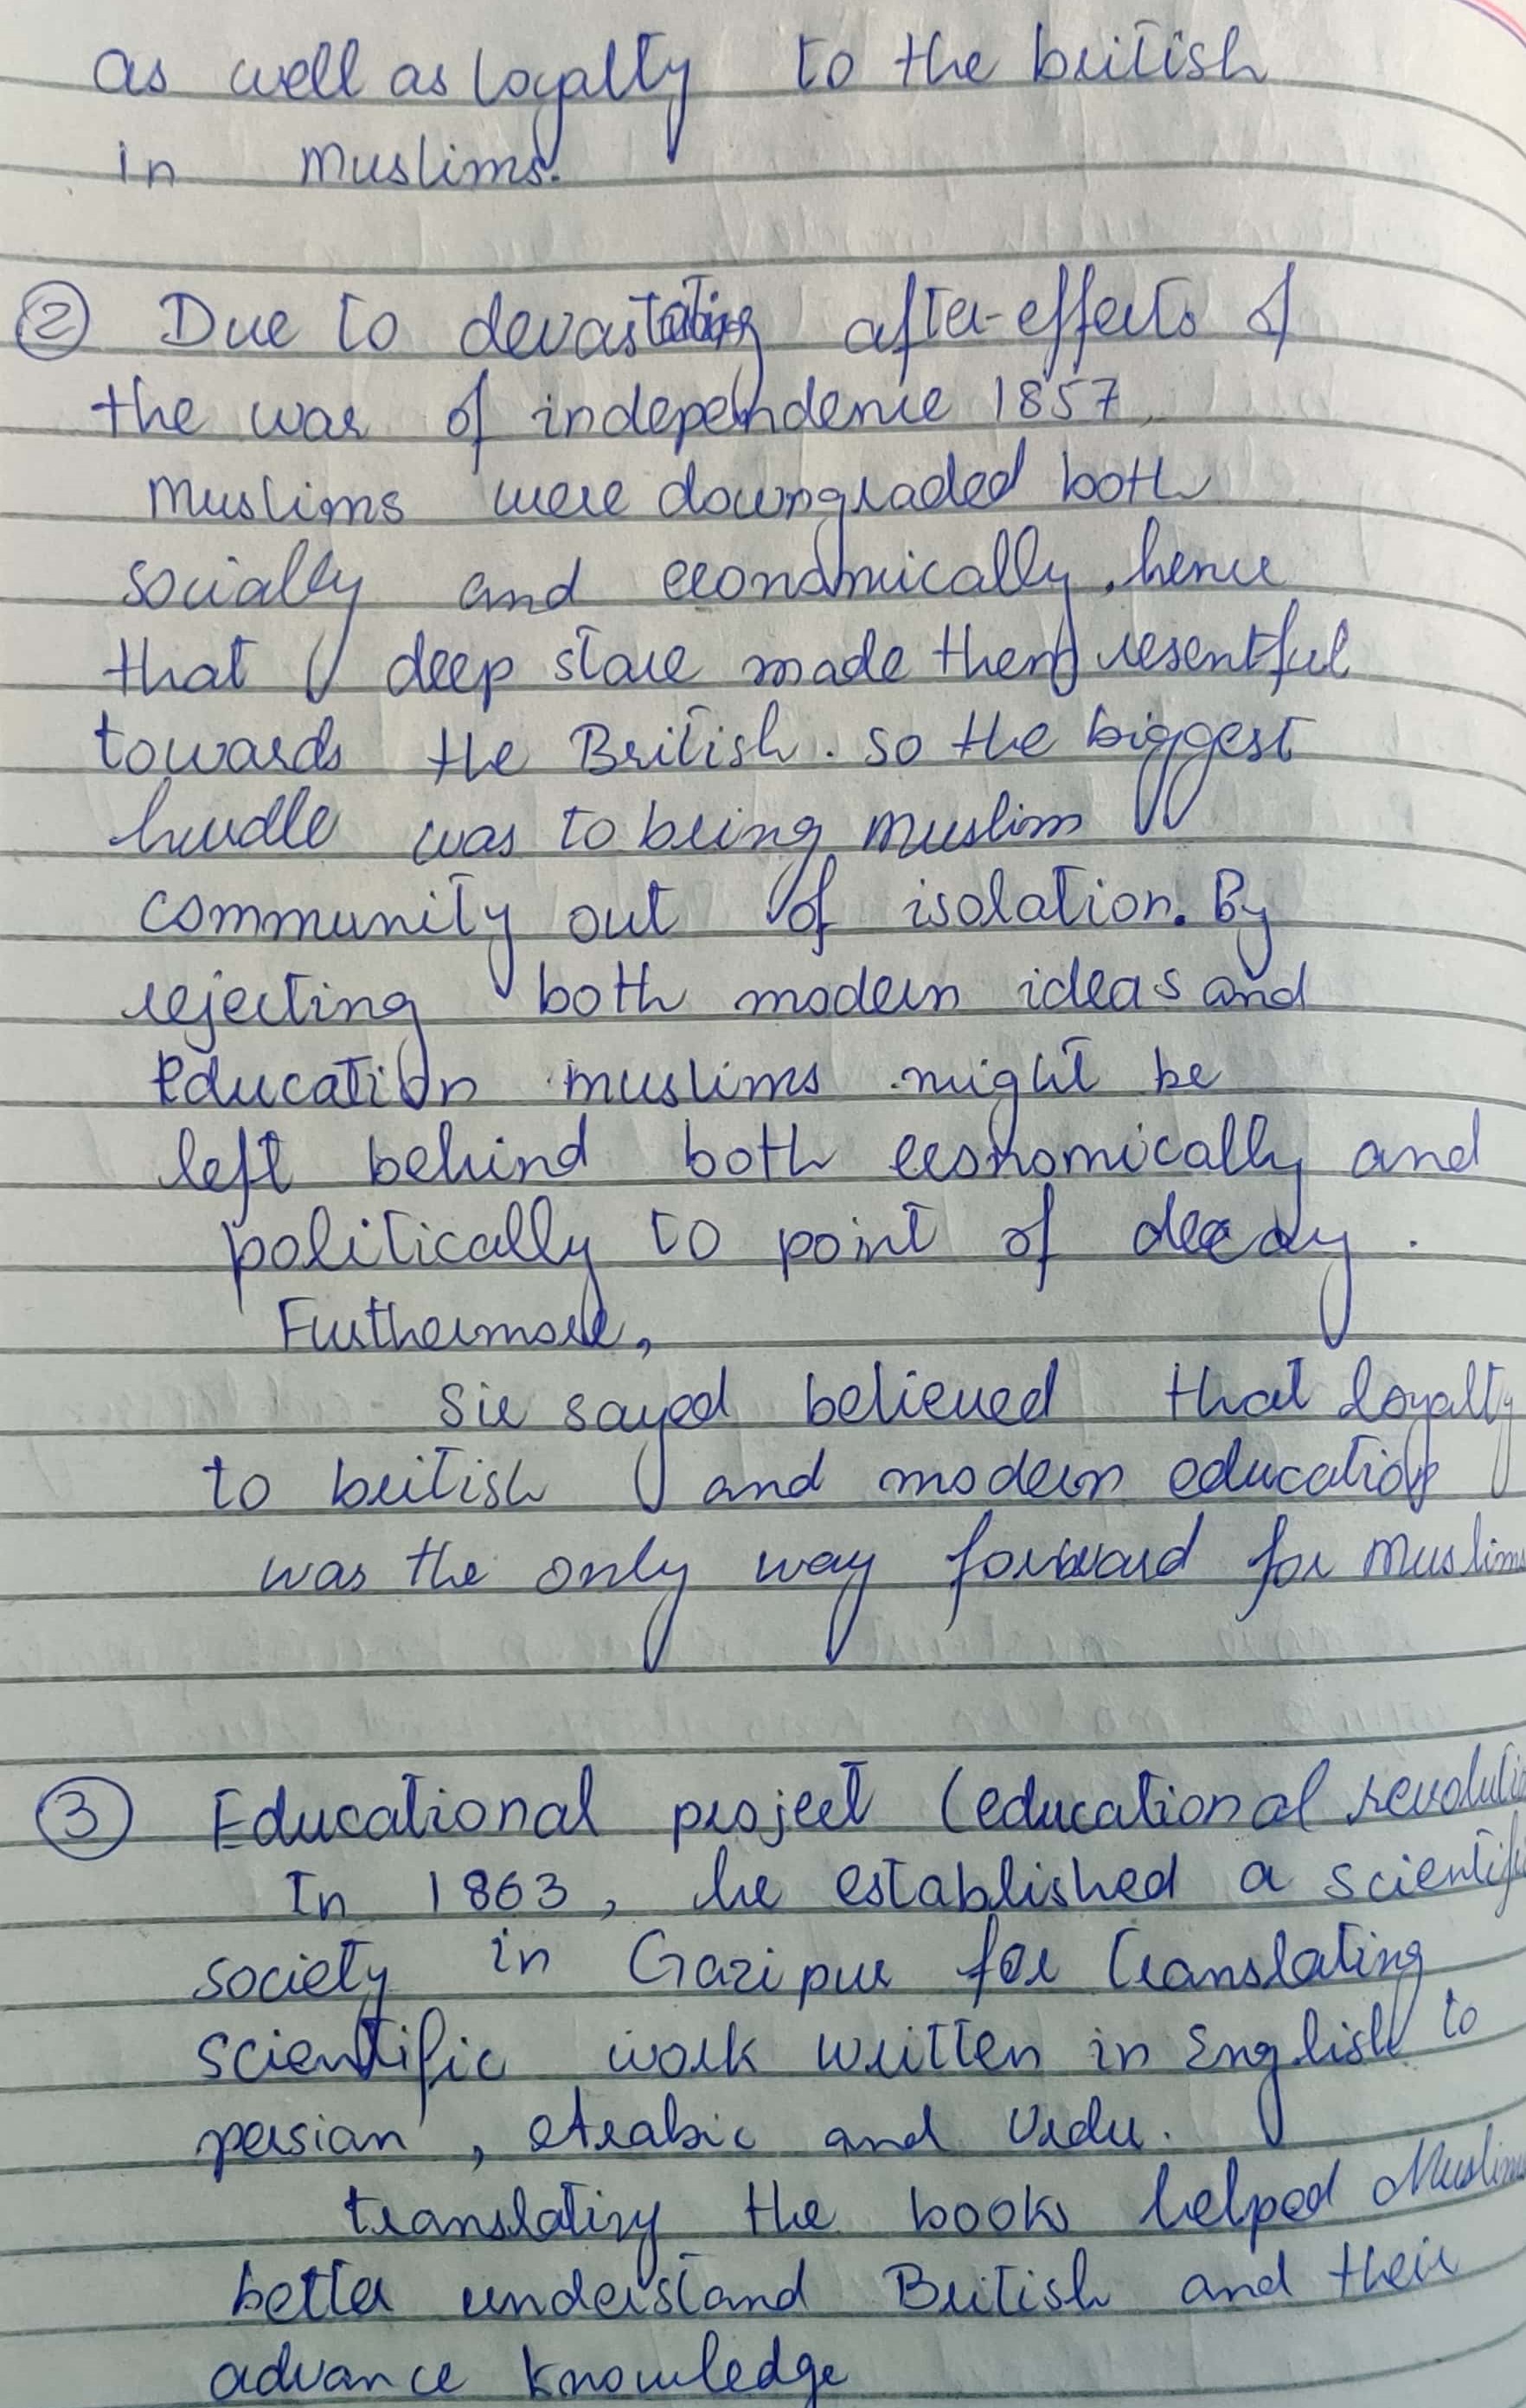 as well as loyalty to the british
in Muslims.
② Due to devastating after-effects of
the war of independence 1857,
Muslims were downgraded both
socially and economically, hence
that deep stare made them resentful
towards the British. so the biggest
hurdle was to bring Muslim
community out of isolation. By
rejecting both modern ideas and
Education muslims might be
left behind both economically and
politically to point of decay.
Furthermore,
Sir sayed believed that loyalty
to british and modern education
was the only way forward for Muslims
③ Educational project (educational revolutio
In 1863, he established a scientifi
society in Gazipur for translating
scientific work written in English to
persian, Arabic and Urdu.
translating the books helped Muslims
better understand British and their
advance knowledge